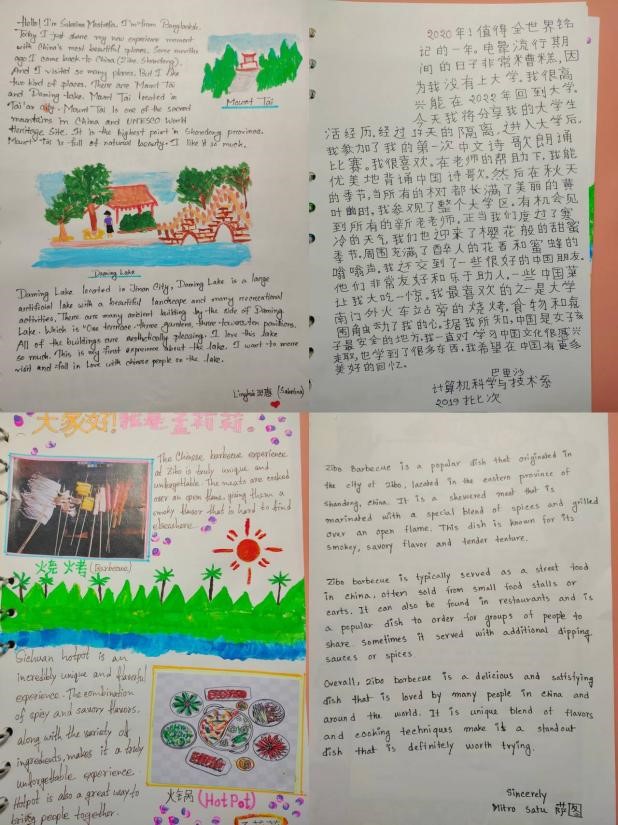 Hello! I'm Sabrina Mostafa. I'm from Bangladesh.
Today I just share my new experience moment
with China's most beautiful places. Some months
ago I come back to China (Zibo, Shandong).
And I visited so many places. But I like
two kind of places. There are Mount Tai
and Daming Lake. Mount Tai located in
Tai'an city. Mount Tai is one of the sacred
mountains in China and UNESCO World
Heritage Site. It is the highest point in Shandong province.
Mount Tai is full of natural beauty. I like it so much.
Mount Tai
Daming Lake
Daming Lake located in Jinan City, Daming Lake is a large
artificial lake with a beautiful landscape and many recreational
activities. There are many ancient building by the side of Daming
Lake. Which is "One terrace, three gardens, three towers, ten pavilions.
All of the buildings are aesthetically pleasing. I love this lake
so much. This is my first experience about the lake. I want to more
visit and fall in love with chinese people so the lake.
(Sabrina)
2020年!值得全世界铭
记的一年。电靠流行期
间的日子非常糟糕,因
为我没有上大学。我很高
兴能在2022年回到大学。
今天我将分享我的大学生
活经历。经过17天的隔离,进入大学后,
我参加了我的第一次中文诗歌朗诵
比赛。我很喜欢。在老师的帮助下,我能
优美地背诵中国诗歌。然后在秋天
的季节,当所有的树都长满了美丽的黄
叶时。我参观了整个大学区。有机会见
到所有的新老老师。正当我们度过了寒
冷的天气,我们也迎来了樱花般的甜蜜
季节。周围充满了醉人的花香和蜜蜂的
嗡嗡声。我还交到了一些很好的中国朋友。
他们非常友好和乐于助人。一些中国菜
让我大吃一惊。我最喜欢的之一是大学
南门外火车站旁的烧烤。食物和氛
围触动了我的心。据我所知,中国是女孩
子最安全的地方。我一直对学习中国文化很感兴
来取,也学到了很多东西。我希望在中国有更多
美好的回忆。
巴里沙
计算机科学与技术系
2019批次
大家好!我是孟莉莉.
The Chinese barbecue experience
at Zibo is truly unique and
unforgettable. The meats are cooked
over an open flame, giving them a
smoky flavor that is hard to find
elsewhere.
烧烤 (Barbecue)
Sichuan hotpot is an
incredibly unique and flavorful
experience. The combination
of spicy and savory flavors,
along with the variety of
ingredients, makes it a truly
unforgettable experience.
Hotpot is also a great way to
bring people together.
火锅 (Hot Pot)
Zibo Barbecue is a popular dish that originated in
the city of Zibo, located in the eastern province of
Shandong, China. It is a skewered meat that is
marinated with a special blend of spices and grilled
over an open flame. This dish is known for its
smokey, savory flavor and tender texture.
Zibo barbecue is typically served as a street food
in china, often sold from small food stalls or
carts. It can also be found in restaurants and is
a popular dish to order for groups of people to
share. sometimes it served with additional dipping
sauces or spices.
Overall, zibo barbecue is a delicious and satisfying
dish that is loved by many people in china and
around the world. It is unique blend of flavors
and cooking techniques make it a standout
dish that is definitely worth trying.
Sincerely
Mitro Satu